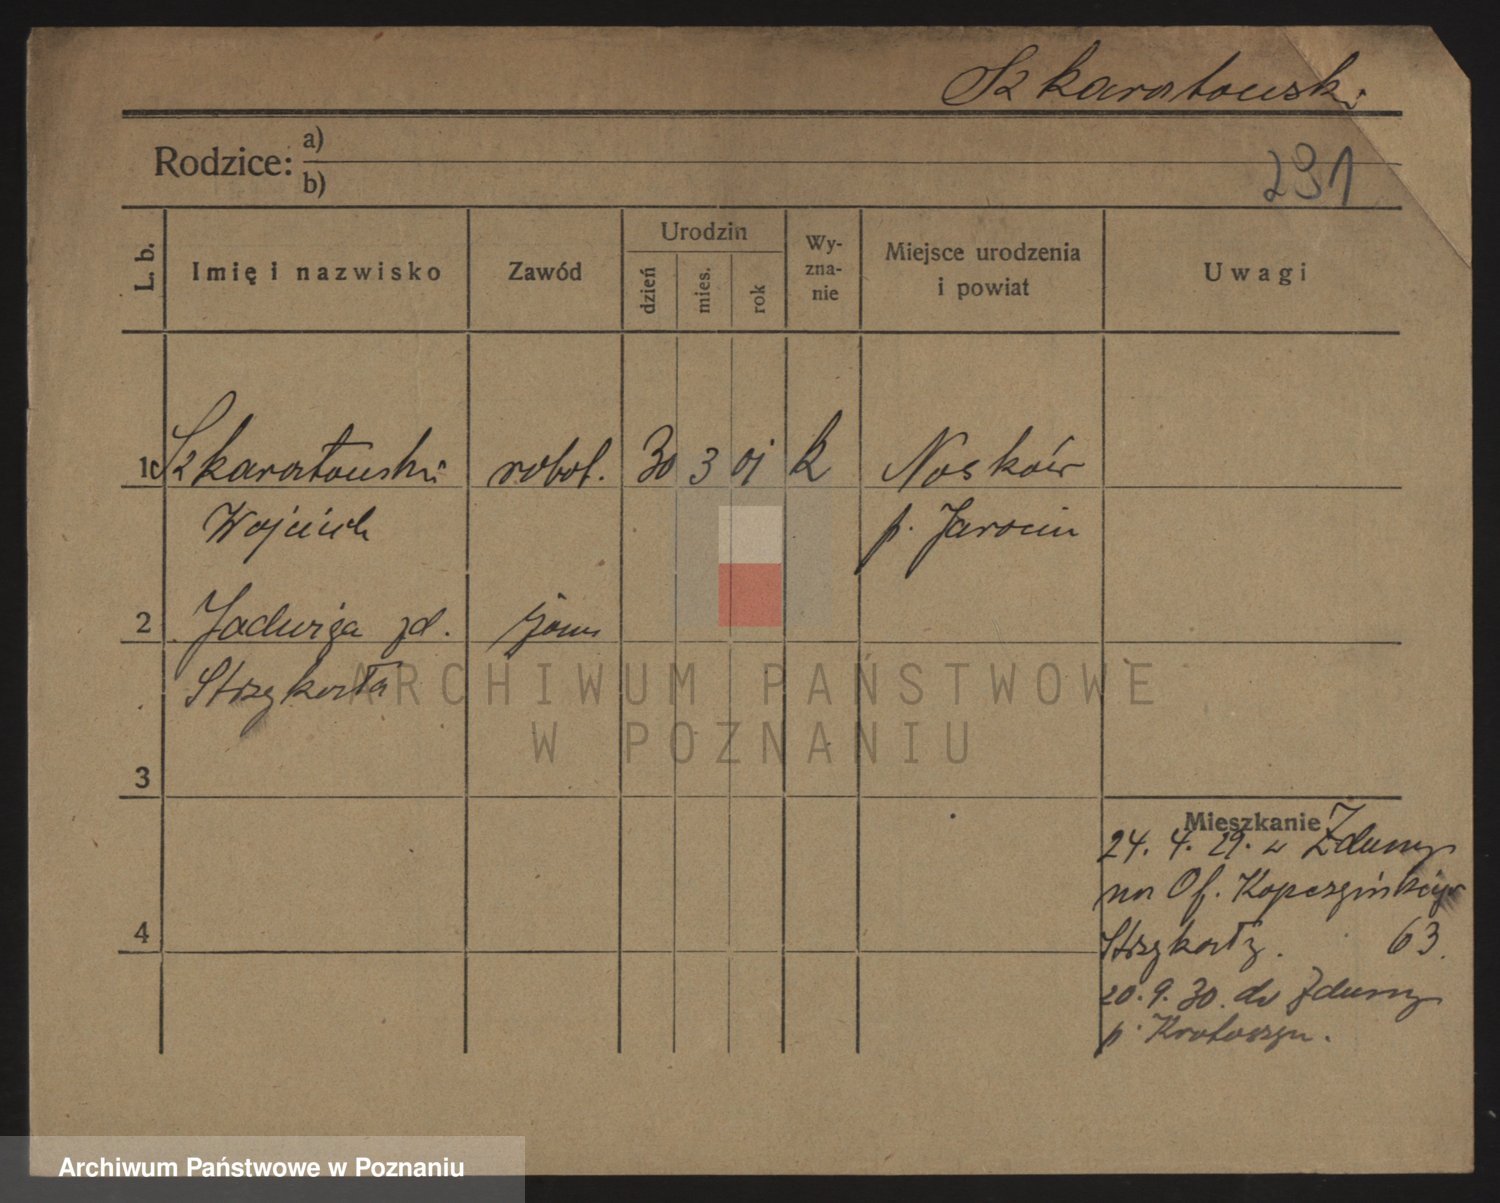 Szkaratowski
Rodzice: a)
b)
291
L. b.
Imię i nazwisko
Zawód
Urodzin
dzień
mies.
rok
Wy-
zna-
nie
Miejsce urodzenia
i powiat
Uwagi
1 Szkaratowski robot. 30 3 01 k Nosków
Wojciech p. Jarocin
2 Jadwiga zd. żona
Strzykosła
3
4
Mieszkanie
24. 4. 29. z Zduny
na Of. Kopczyńskiego
Strzykosły. 63.
20. 9. 30. do Zduny
p. Krotoszyn.
ARCHIWUM PAŃSTWOWE
W POZNANIU
Archiwum Państwowe w Poznaniu